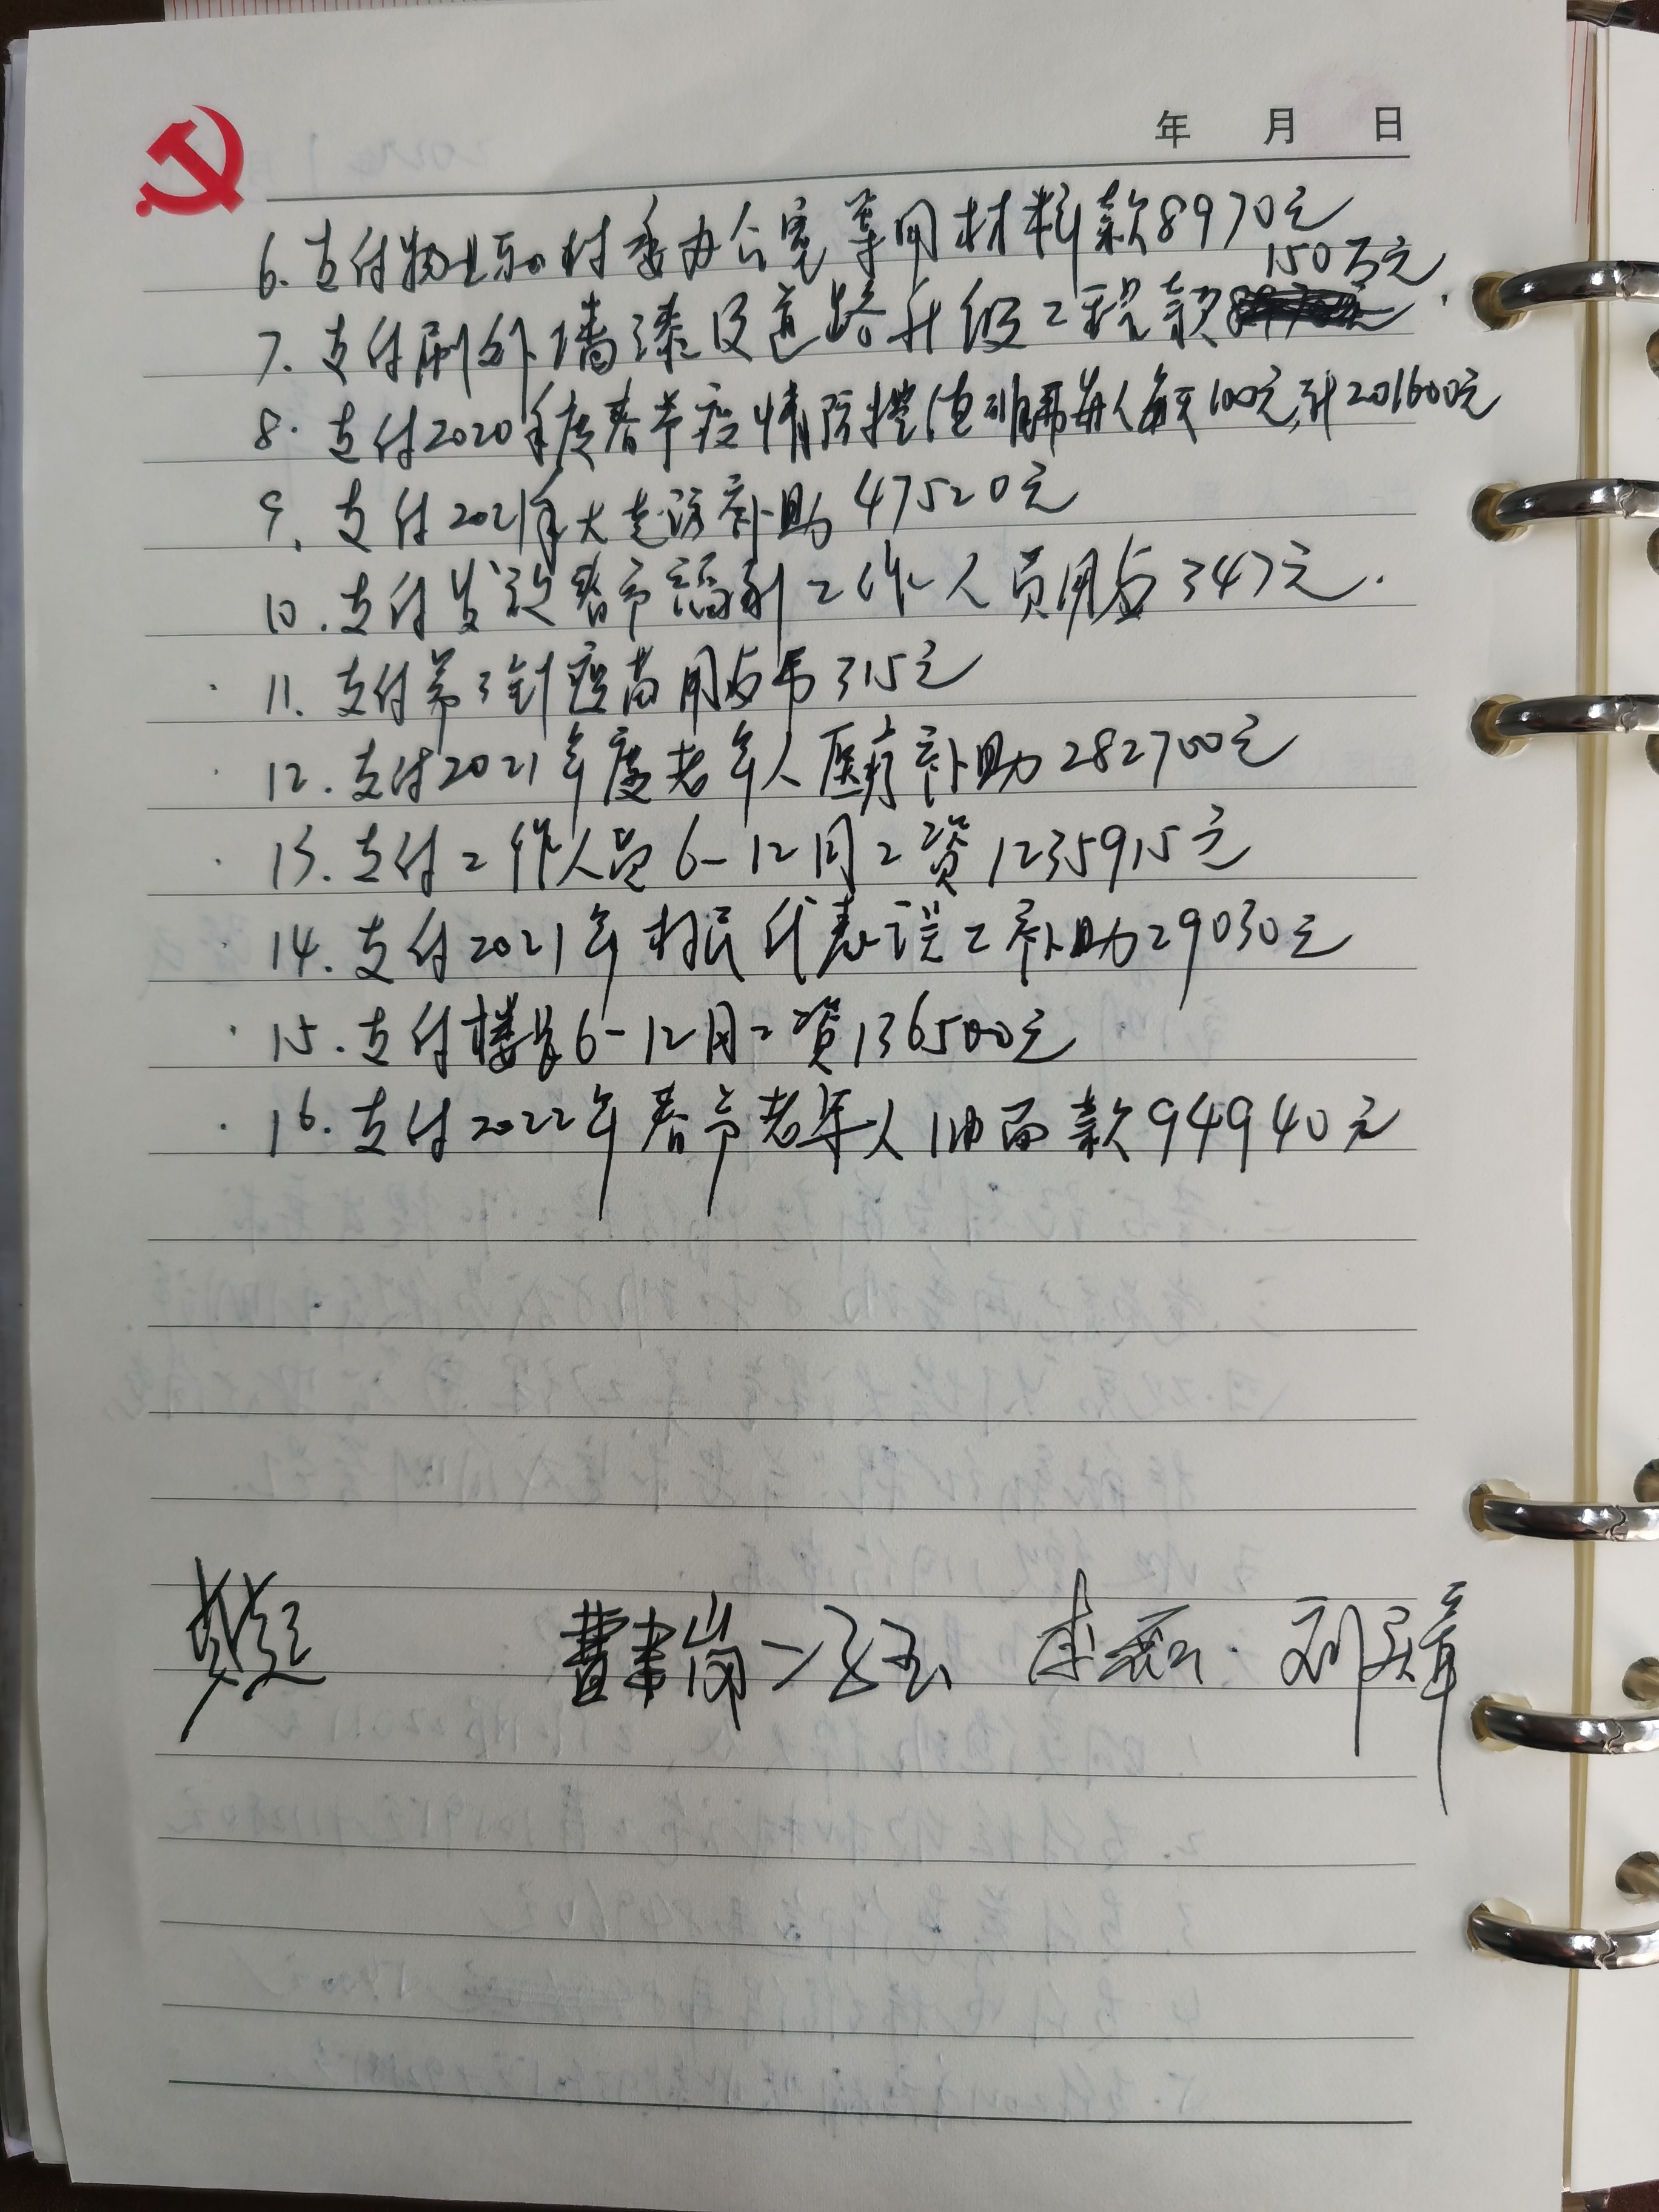 年 月 日
6. 支付物业和村委办公室等用材料款8970元
150万元
7. 支付刷外墙漆及道路升级工程款
8. 支付2020年度春节疫情防控值班每人每天100元,计201600元
9. 支付2021年大走访补助47520元
10. 支付发放春节福利工作人员用点347元.
11. 支付第3针疫苗用点 315元
12. 支付2021年度老年人医疗补助282700元
13. 支付工作人员6-12月工资1235915元
14. 支付2021年村民代表误工补助29030元
15. 支付楼长6-12月工资136500元
16. 支付2022年春节老年人油面款94940元